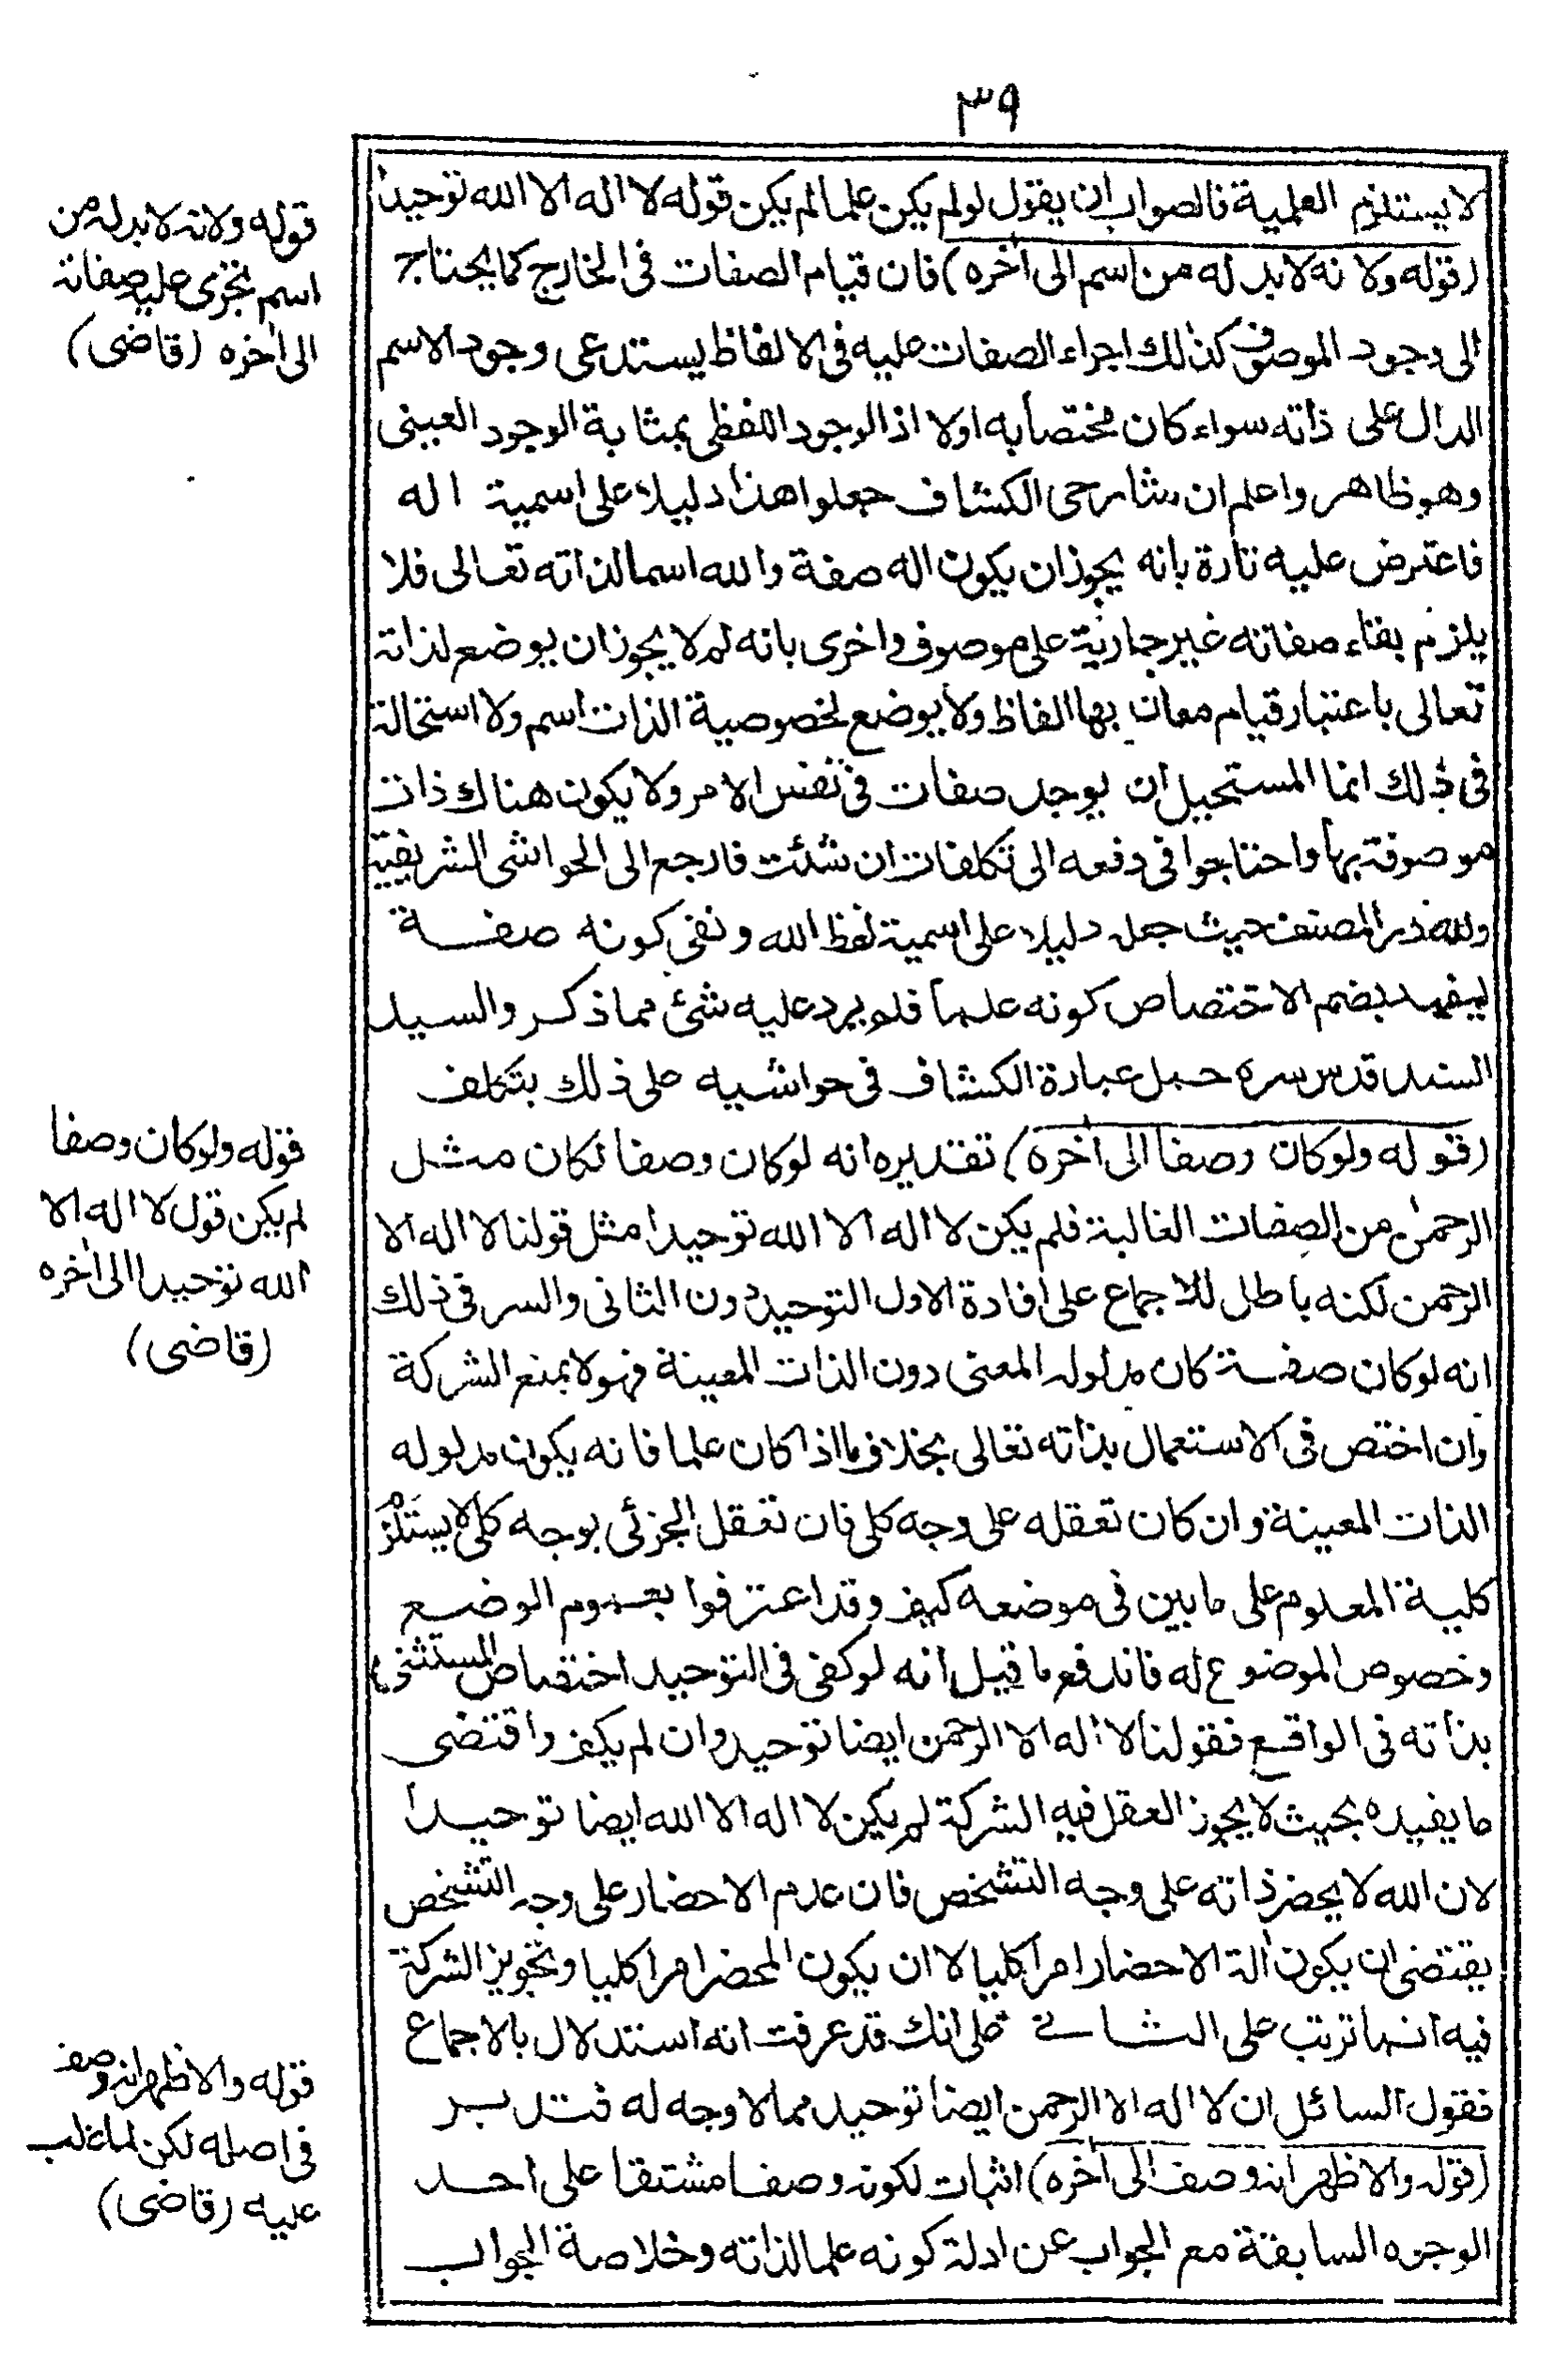 ٣٩
لا يستلزم العلمية فالصواب ان يقول لو لم يكن علما لم يكن قوله لا اله الا الله توحيدا
(قوله ولانه لا بد له من اسم الى أخره) فان قيام الصفات فى الخارج كما يحتاج
الى وجود الموصوف كذلك اجراء الصفات عليه فى الالفاظ يستدعى وجود الاسم
الدال على ذاته سواء كان مختصا به اولا اذ الوجود اللفظى بمثابة الوجود العينى
وهو ظاهر واعلم ان شارحى الكشاف جعلوا هذا دليلا على اسمية اله
فاعترض عليه تارة بانه يجوز ان يكون اله صفة والله اسما لذاته تعالى فلا
يلزم بقاء صفاته غير جارية على موصوف واخرى بانه لم لا يجوز ان يوضع لذاته
تعالى باعتبار قيام معان بها الفاظ ولا يوضع لخصوصية الذات اسم ولا استحالة
فى ذلك انما المستحيل ان يوجد صفات فى نفس الامر ولا يكون هناك ذات
موصوفة بها واحتاجوا فى دفعه الى تكلفات ان شئت فارجع الى الحواشى الشريفية
ولله در المصنف حيث جعل دليلا على اسمية لفظ الله ونفى كونه صفة
ليفيد بضم الاختصاص كونه علما فلم يرد عليه شئ مما ذكر والسيد
السند قدس سره حمل عبارة الكشاف فى حواشيه على ذلك بتكلف
(قوله ولو كان وصفا الى أخره) تقديره انه لو كان وصفا لكان مثل
الرحمن من الصفات الغالبة فلم يكن لا اله الا الله توحيدا مثل قولنا لا اله الا
الرحمن لكنه باطل للاجماع على افادة الاول التوحيد دون الثانى والسر فى ذلك
انه لو كان صفة كان مدلوله المعنى دون الذات المعينة فهو لا يمنع الشركة
وان اختص فى الاستعمال بذاته تعالى بخلاف ما اذا كان علما فانه يكون مدلوله
الذات المعينة وان كان تعقله على وجه كلى فان تعقل الجزئى بوجه كلى لا يستلزم
كلية المعلوم على ما بين فى موضعه كيف وقد اعترفوا بعموم الوضع
وخصوص الموضوع له فاندفع ما قيل انه لو كفى فى التوحيد اختصاص المستثنى
بذاته فى الواقع فقولنا لا اله الا الرحمن ايضا توحيد وان لم يكف واقتضى
ما يفيده بحيث لا يجوز العقل فيه الشركة لم يكن لا اله الا الله ايضا توحيدا
لان الله لا يحضر ذاته على وجه التشخص فان عدم الاحضار على وجه التشخص
يقتضى ان يكون ألة الاحضار امرا كليا لا ان يكون المحضر امرا كليا وتجويز الشركة
فيه انما ترتب على الثانى على انك قد عرفت انه استدلال بالاجماع
فقول السائل ان لا اله الا الرحمن ايضا توحيد مما لا وجه له فتدبر
(قوله والاظهر انه وصف الى أخره) اثبات لكونه وصفا مشتقا على احد
الوجوه السابقة مع الجواب عن ادلة كونه علما لذاته وخلاصة الجواب
قوله ولانه لا بد له من
اسم تجرى عليه صفاته
الى أخره (قاضى)
قوله ولو كان وصفا
لم يكن قول لا اله الا
الله توحيدا الى أخره
(قاضى)
قوله والاظهر انه وصف
فى اصله لكن لما غلب
عليه (قاضى)